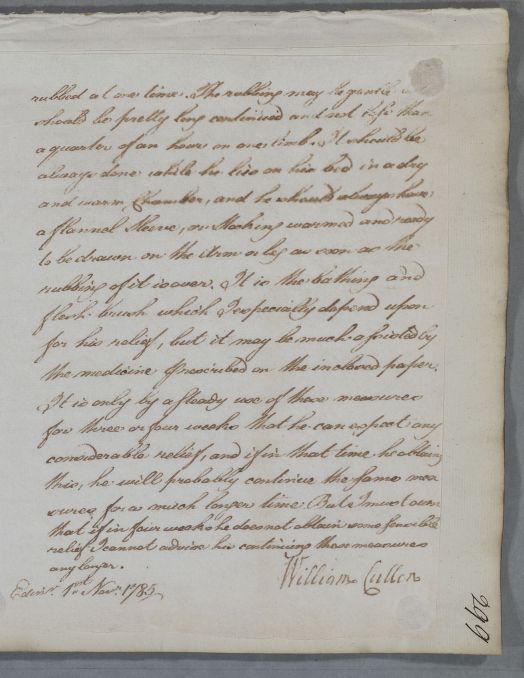 rubbed at one time. The rubbing may be gentle
should be pretty long continued and not less than
a quarter of an hour on one limb. It should be
always done while he lies on his bed in a dry
and warm Chamber, and he should always have
a flannel Sleeve, or Stocking warmed and ready
to be drawn on the Arm or leg as soon as the
rubbing of it is over. It is the bathing and
flesh-brush which I especially depend upon
for his relief, but it may be much assisted by
the medicine prescribed on the inclosed paper.
It is only by a steady use of these measures
for three or four weeks that he can expect any
considerable relief, and if in that time he obtains
this, he will probably continue the same mea
sures for a much longer time. But I must own
that if in four weeks he does not obtain some sensible
relief I cannot advise his continuing these measures
any longer.
William Cullen
Edinr. 1st Novr. 1785
299